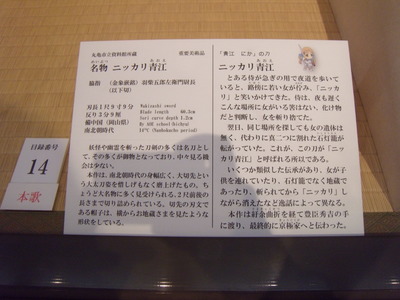 丸亀市立資料館所蔵
重要美術品
めいぶつ
あおえ
名物 ニッカリ青江
脇指 (金象嵌銘)羽柴五郎左衛門尉長
(以下切)
刃長1尺9寸9分
反り2分9厘
備中国(岡山県)
南北朝時代
Wakizashi sword
Blade length 60.3cm
Sori curve depth 1.2cm
By AOE school Bicchyu
14ᵗʰC (Nanbokucho period)
妖怪や幽霊を斬った刀剣の多くは名刀とし
て、その多くが御物となっており、中々見る機
会は少ない。
本作は、南北朝時代の身幅広く、大切先とい
う大太刀姿を惜しげもなく磨上げたもの。ち
ょうど大名物に多く見受けられる、2尺前後の
長さまで切り詰められている。切先の刃文で
ある帽子は、横からお地蔵さまを見たような
形状をしている。
「青江 にか」の刀
とある侍が急ぎの用で夜道を歩いて
いると、路傍に若い女が佇み、「ニッカ
リ」と笑いかけてきた。侍は、夜も遅く
こんな場所に女がいる筈はない。化け物
だと判断し、女を斬り捨てた。
翌日、同じ場所を探しても女の遺体は
無く、代わりに真二つに割れた石灯籠が
転がっていた。これが、この刀が「ニッカ
リ青江」と呼ばれる所以である。
いくつか類似した伝承があり、女が子
供を連れていたり、石灯籠でなく地蔵で
あったり、斬られてから「ニッカリ」し
ながら消えたなど逸話によって異なる。
本作は紆余曲折を経て豊臣秀吉の手
に渡り、最終的に京極家へと伝わった。
目録番号
14
本歌